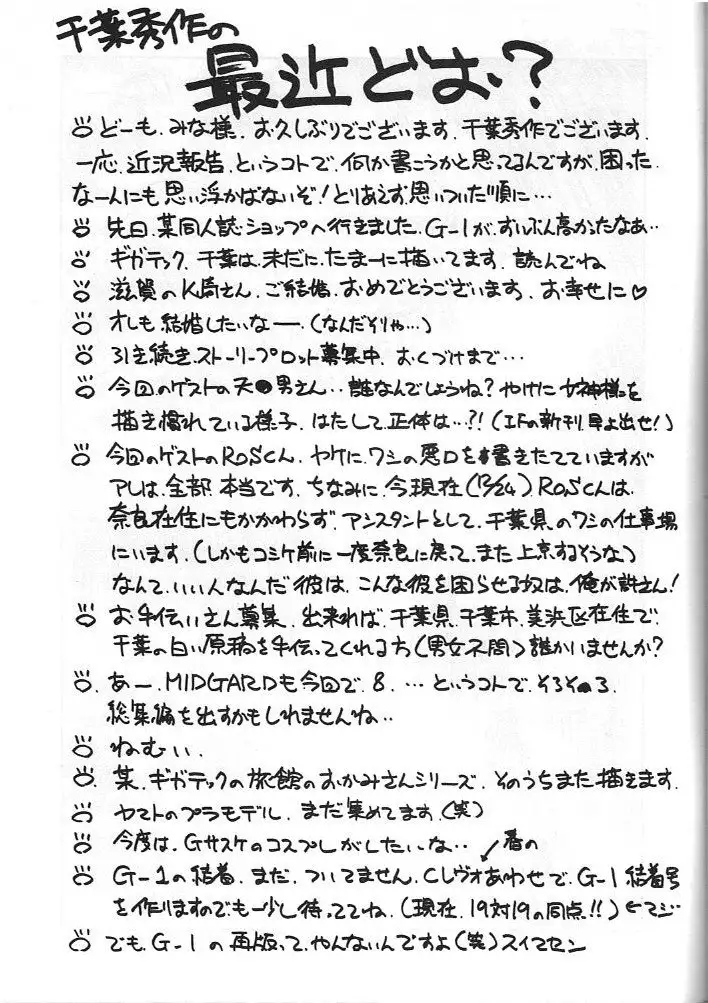 千葉秀作の
最近どお?
どーも、みな様、お久しぶりでございます、千葉秀作でございます、
一応、近況報告、というコトで、何か書こうかと思ってるんですが、困った、
なーんにも思い浮かばないぞ!とりあえず思いついた順に…
先日、某同人誌ショップへ行きました、G-1が、ずいぶん高かったなあ…
ギガテック、千葉は、未だに、たまーに描いてます、読んでね
滋賀のK岡さん、ご結婚、おめでとうございます、お幸せに♡
オレも結婚したいなー、(なんだそりゃ…)
引き続き、ストーリープロット募集中、おくづけまで…
今回のゲストの天●男さん‥誰なんでしょうね?やけに女神様を
描き慣れている様子、はたして、正体は…?!(IFの新刊、早よ出せ!)
今回のゲストのRoSくん、ヤケに、ワシの悪口を書きたてていますが
アレは、全部、本当です、ちなみに、今現在(12/24)、RoSくんは、
奈良在住にもかかわらず、アシスタントとして、千葉県、のワシの仕事場
にいます、(しかもコミケ前に一度奈良に戻って、また上京するそうな)
なんて、いい人なんだ彼は、こんな彼を困らせる奴は、俺が許さん!
お手伝いさん募集、出来れば、千葉県、千葉市、美浜区在住で、
千葉の白い原稿を手伝ってくれる方(男女不問)誰かいませんか?
あー、MIDGARDも今回で、8、…というコトで、そろそろ、
総集編を出すかもしれませんね‥
ねむい、
某、ギガテックの旅館のおかみさんシリーズ、そのうちまた描きます、
ヤマトのプラモデル、まだ集めてます、(笑)
今度は、Gサスケのコスプレがしたいな‥
春の
G-1の結着、まだ、ついてません、Cレヴォあわせで、G-1結着号
を作りますのでも一少し待っててね、(現在、19対19の同点!!)←マジ
でも、G-1の再版って、やんないんですよ(笑)スイマセン